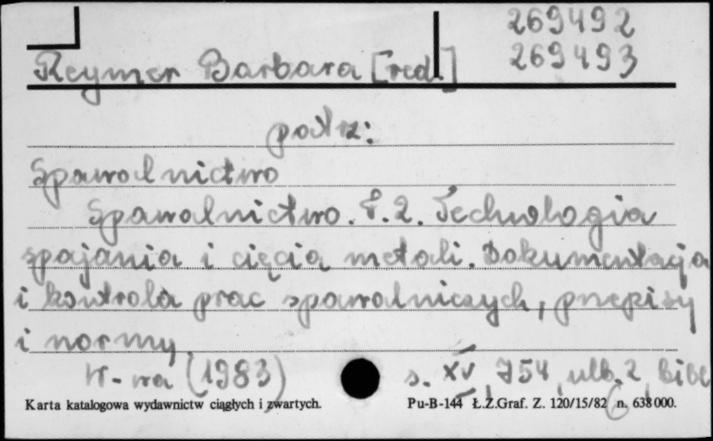 269492
269493
Reymer Barbara [red.]
patrz:
Spawalnictwo
Spawalnictwo. T. 2. Technologia
spajania i cięcia metali. Dokumentacja
i kontrola prac spawalniczych, przepisy
i normy
W-wa (1983) s. XV, 754, ulb. 2, Bibl
Karta katalogowa wydawnictw ciągłych i zwartych. Pu-B-144 Ł.Z.Graf. Z. 120/15/82 n. 638000.